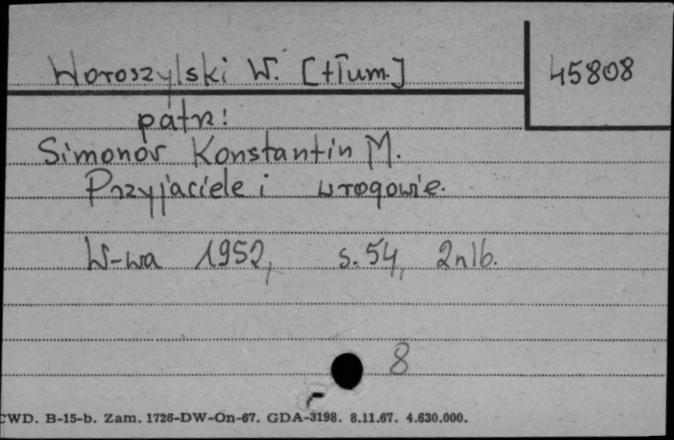 Woroszylski W. [tłum.]
45808
patrz:
Simonov Konstantin M.
Przyjaciele i wrogowie.
W-wa 1952, s. 54, 2nlb.
8
CWD. B-15-b. Zam. 1726-DW-On-67. GDA-3198. 8.11.67. 4.630.000.